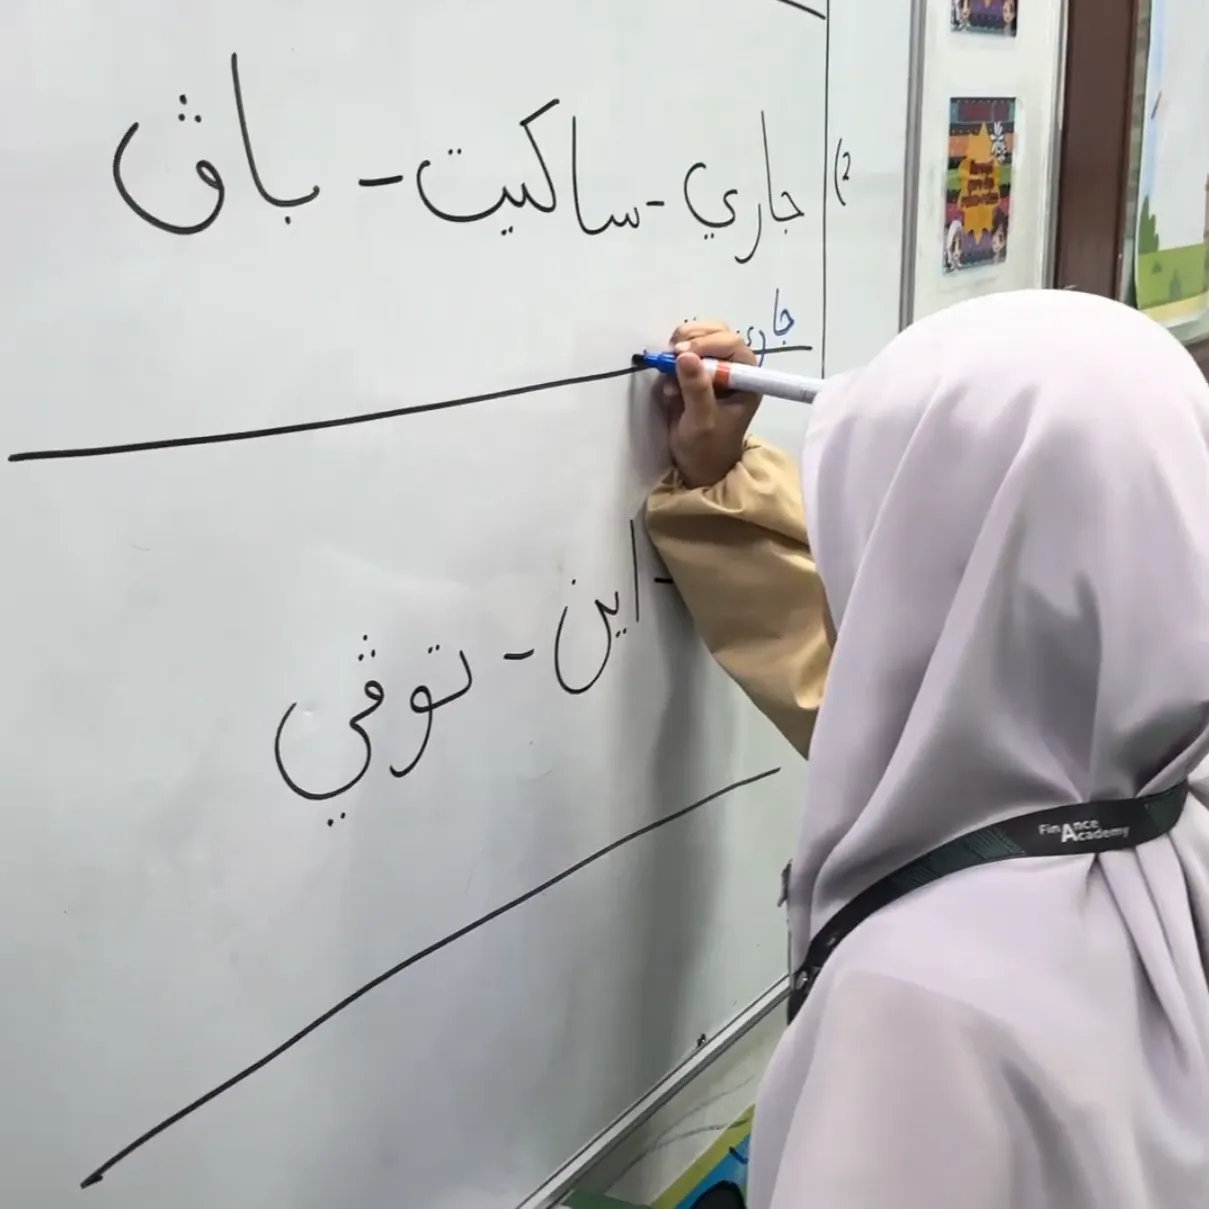 2)
جاري - ساكيت - باڤ
جاري
- اين - توڤي
FinAnce
Academy